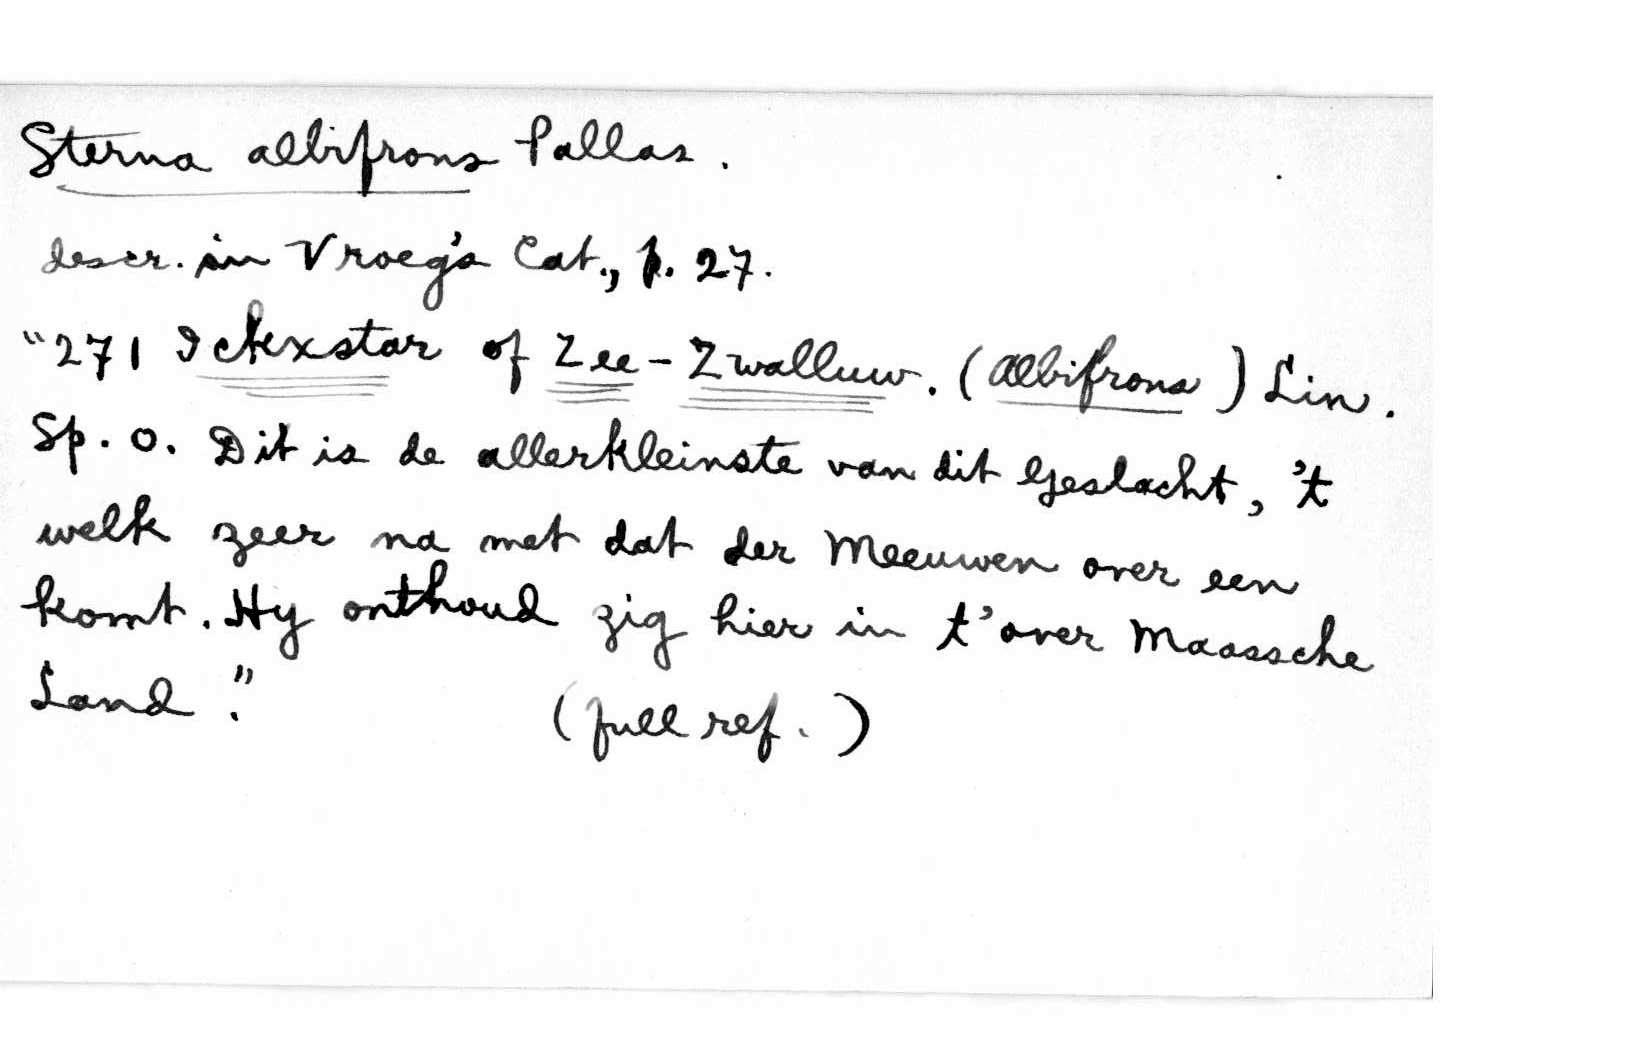 Sterna albifrons Pallas.
descr. in Vroeg's Cat., p. 27.
"271 Ickxstar of Zee-Zwalluw. (Albifrons) Lin.
Sp. o. Dit is de allerkleinste van dit Geslacht, 't
welk zeer na met dat der Meeuwen over een
komt. Hy onthoud zig hier in t' over Maassche
Land."
(full ref.)